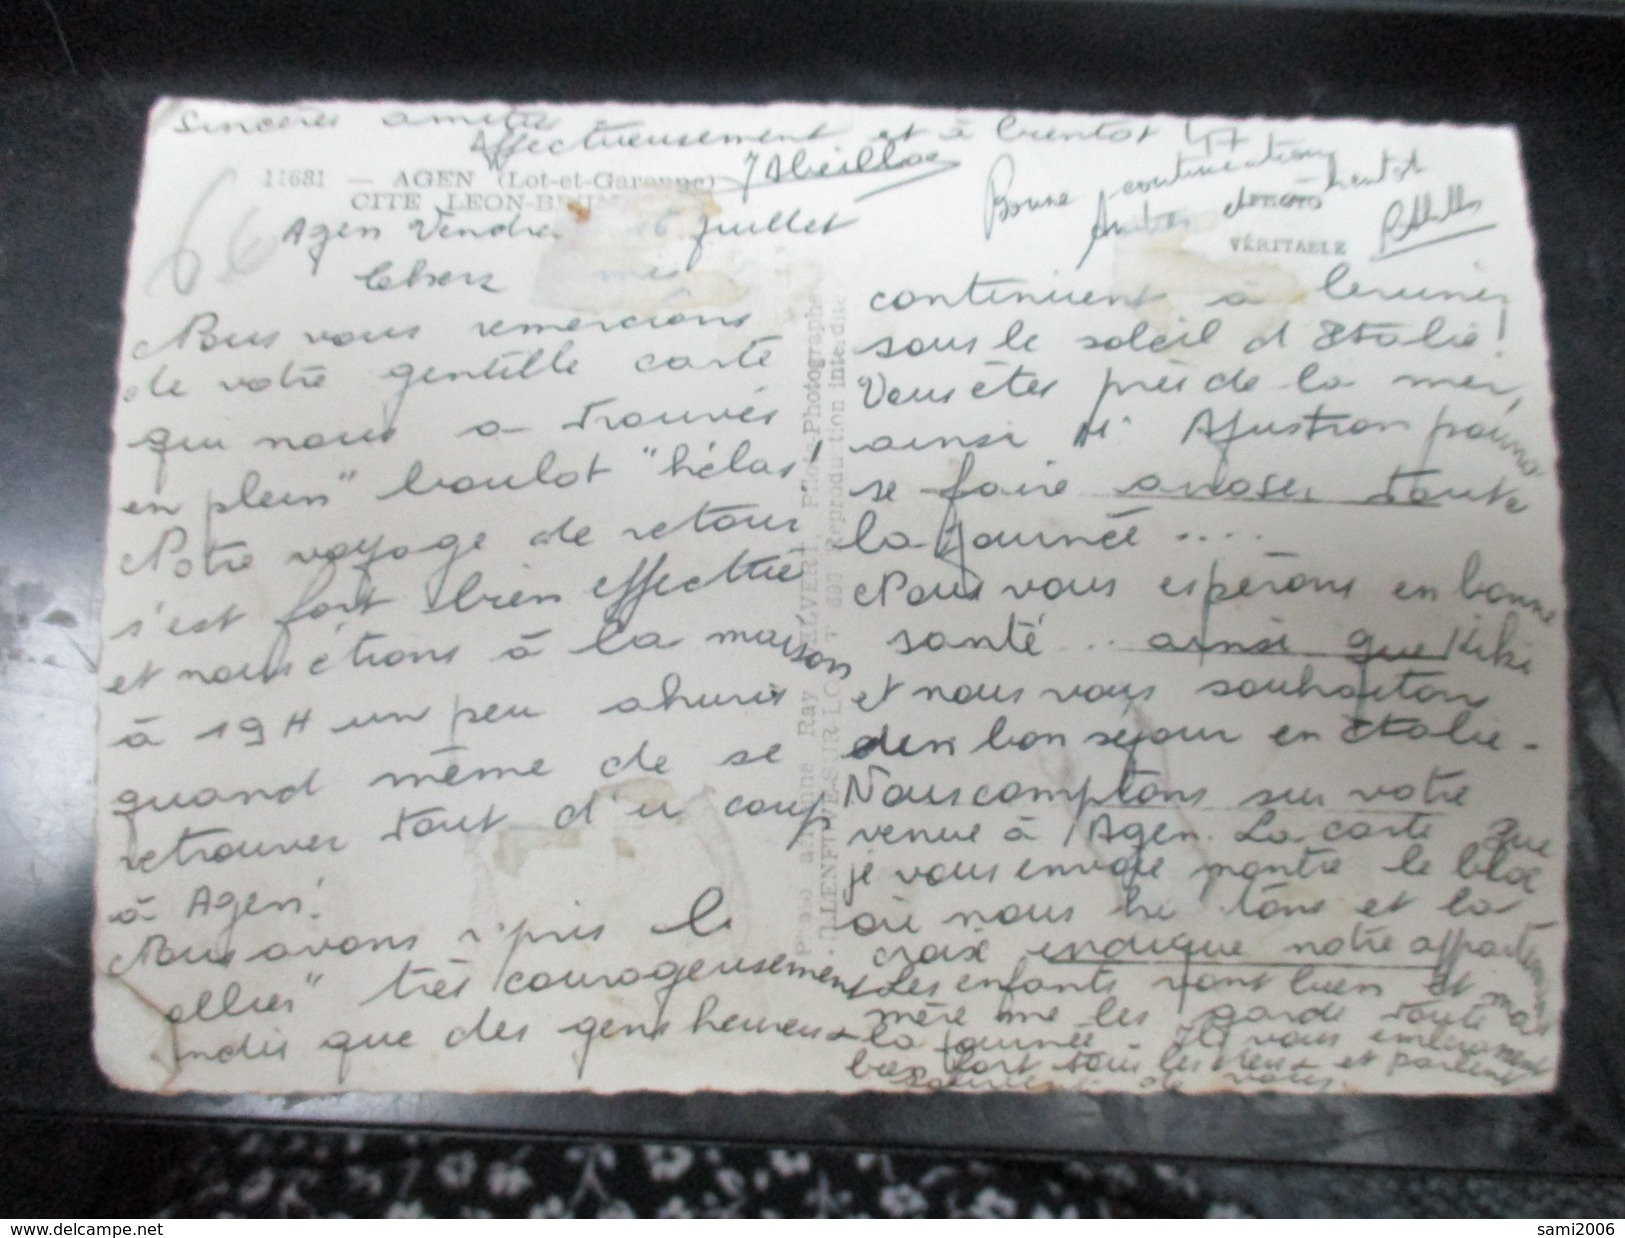 Sincères amitiés
Affectueusement et à bientot
47
11681 — AGEN (Lot-et-Garonne)
CITE LEON-BLUM
Bonne continuation
Amitiés
bientot
VÉRITABLE
Agen Vendredi 16 Juillet
Chers amis
Nous vous remercions
de votre gentille carte
qui nous a trouvés
en plein "boulot" hélas!
Notre voyage de retour
s'est fort bien effectué
et nous étions à la maison
à 19H un peu ahuris
quand même de se
retrouver tout d'un coup
à Agen!
Nous avons r'pris le
collier" très courageusement
tandis que des gens heureux
continuent à brunir
sous le soleil d'Italie!
Vous êtes près de la mer,
ainsi Mr
se faire arroser toute
la journée ....
Nous vous espérons en bonne
santé .. ainsi que Kiki
et nous vous souhaitons
un bon séjour en Italie.
Nous comptons sur votre
venue à Agen. La carte que
je vous envoie montre le bloc
où nous habitons et la
croix indique notre appartement
Les enfants vont bien et ma
mère me les garde toute
la journée. Ils vous embrassent
bien fort tous les deux et parlent
souvent de vous.
Photo aérienne Ray DELVERT, Pilote-Photographe
VILLENEUVE-SUR-LOT Reproduction interdite
66
delcampe.net
sami2006